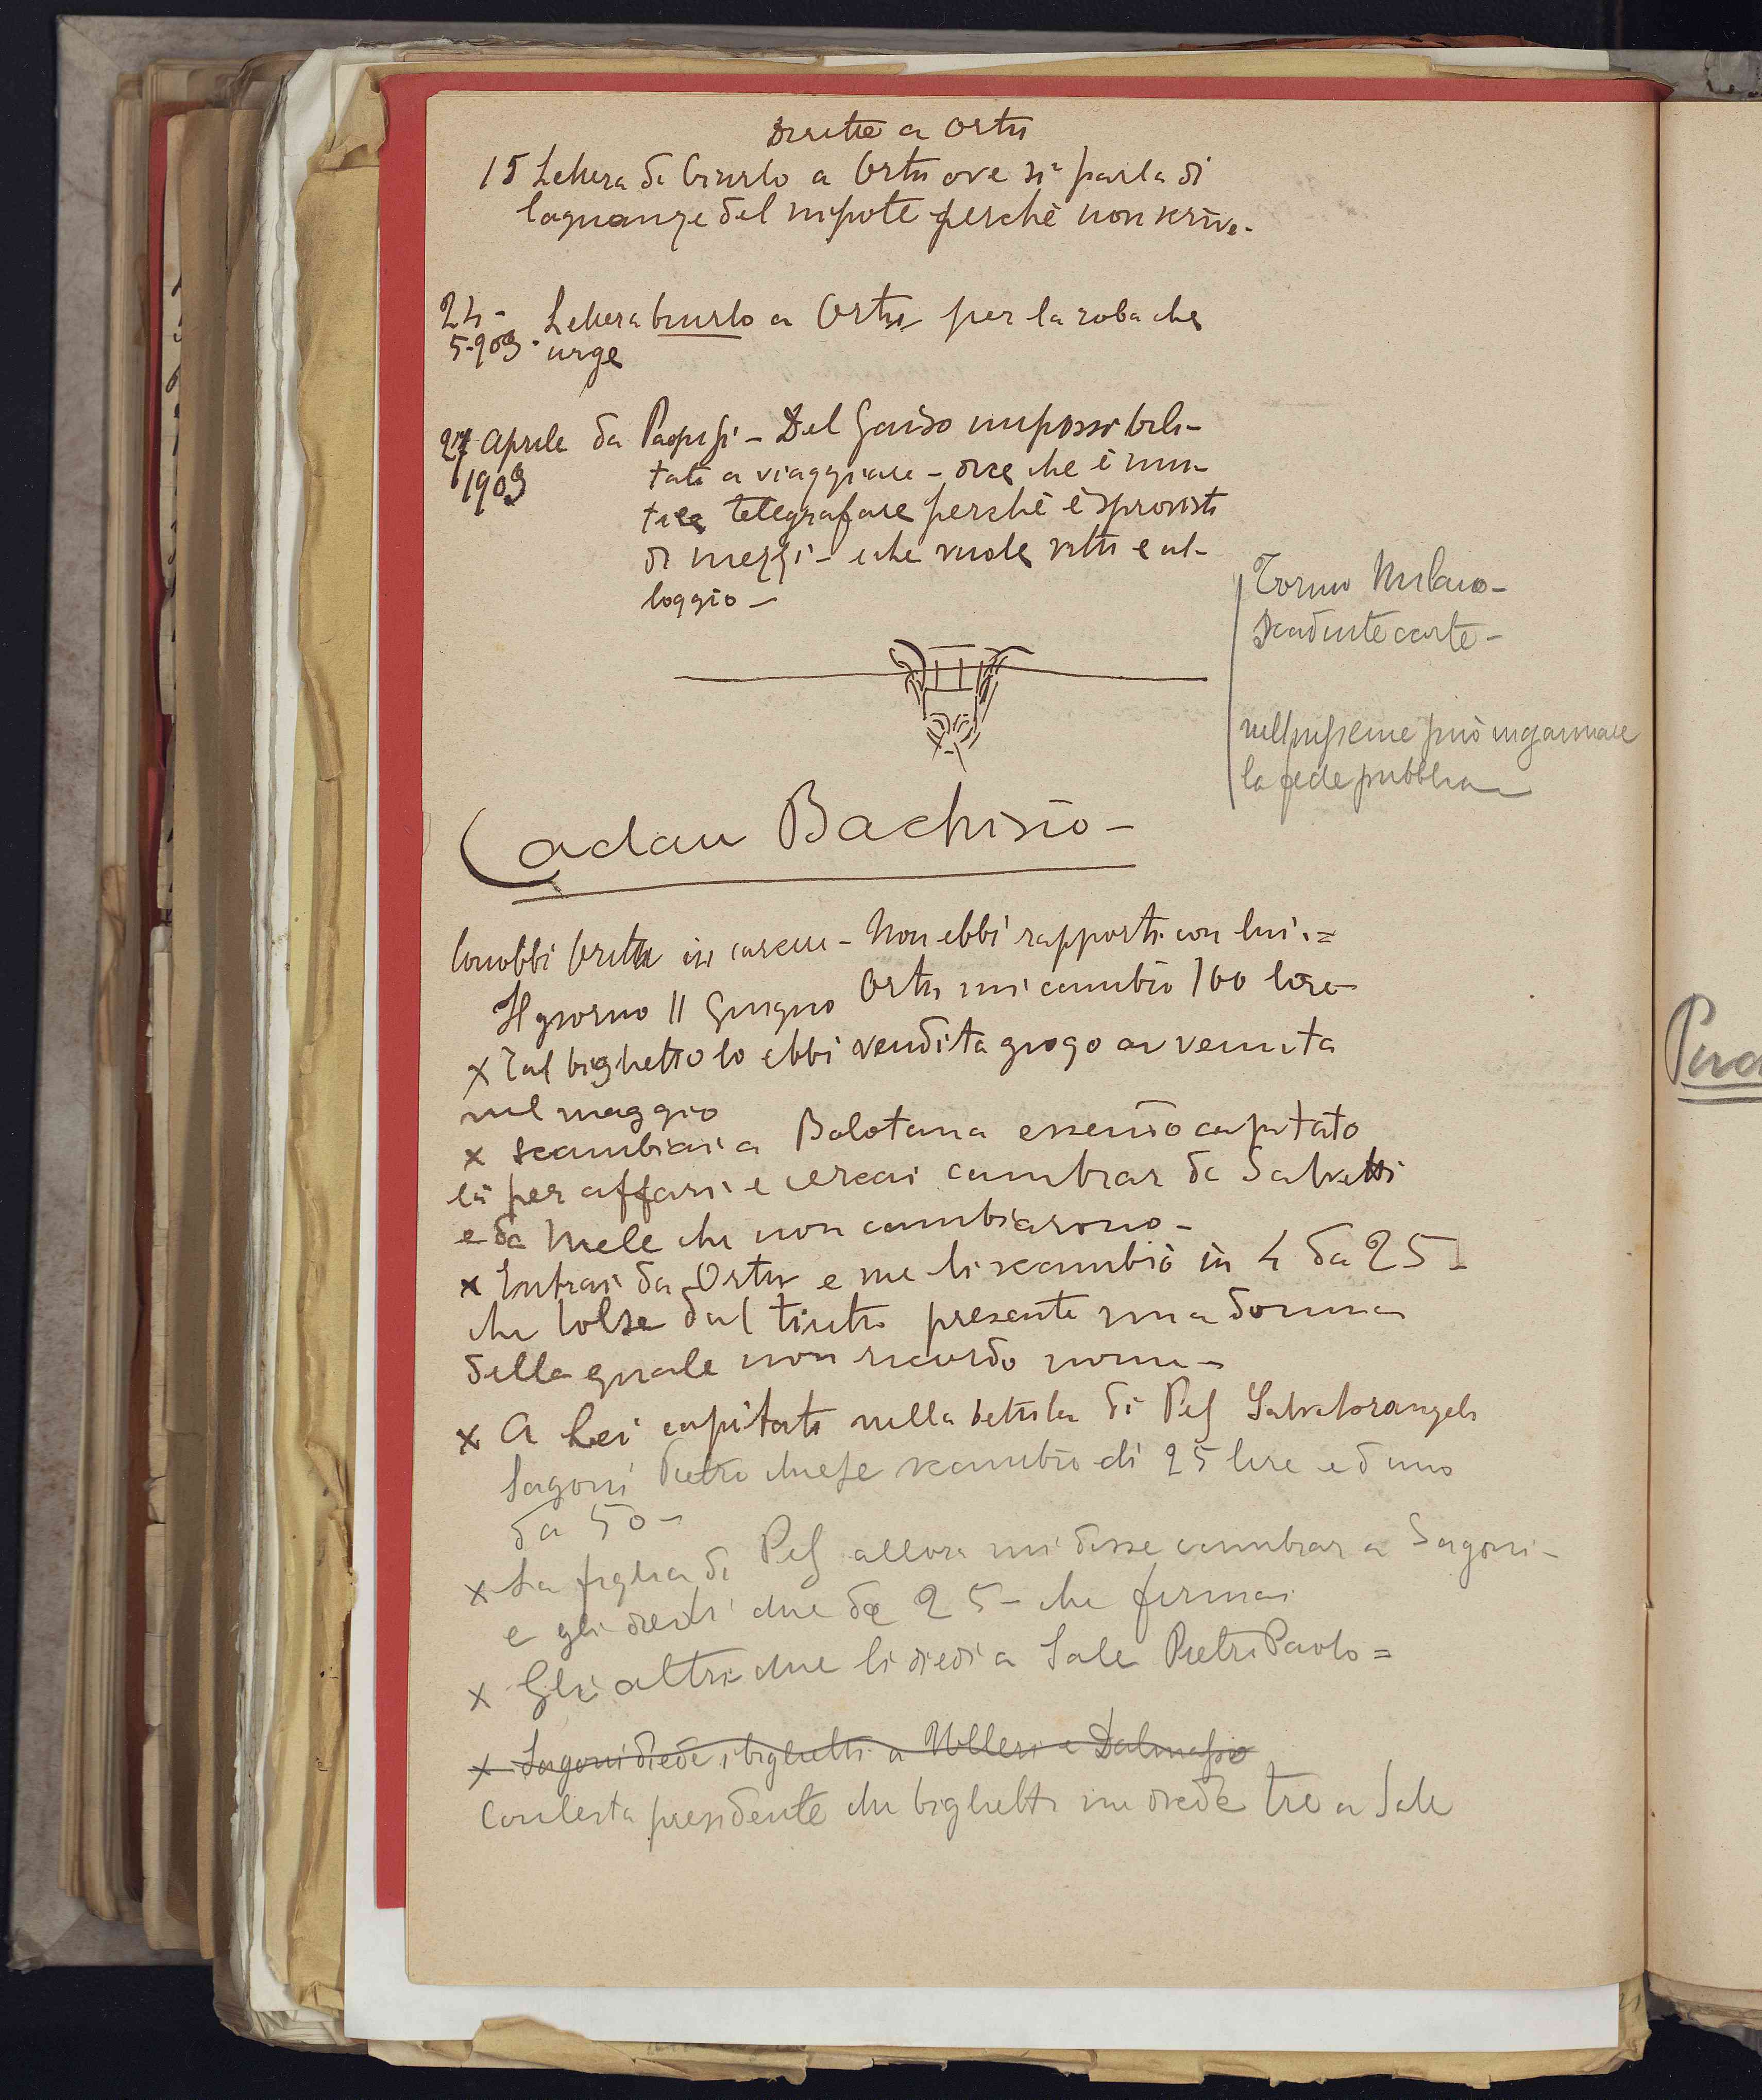 dirette a Ortu
15 Lettera di Ciurlo a Ortu ove si parla di
lagnanze del nipote perchè non scrive.
24-
5-903. Lettera Ciurlo a Ortu per la roba che
urge
27 Aprile da Paopisi - Del Gaudo impossibili-
1903
tato a viaggiare - dice che è inu-
tile telegrafare perchè è sprovisto
di mezzi - e che vuole vitto e al-
loggio -
Torino Milano -
scadente carte -
nell'insieme può ingannare
la fede pubblica
Cadau Bachisio -
Conobbi Ortu in carcere - Non ebbi rapporti con lui. =
Il giorno 11 Giugno Ortu mi cambiò 100 lire
x Tal biglietto lo ebbi vendita giogo avvenuta
nel maggio
x scambiai a Bolotana essendo capitato
là per affari e cercai cambiar da Salvatti
e da Mele che non cambiarono -
x Entrai da Ortu e me li scambiò in 4 da 25 -
che tolse dal tiretto presente una donna
della quale non ricordo nome -
x A Lei capitato nella bettola di Pes Salvatorangelo
Sagoni Pietro chiese scambio di 25 lire ed uno
da 50 -
x La figlia di Pes allora mi disse cambiar a Sagoni -
e gli diedi due da 25 - che firmai
x Gli altri due li diedi a Sale Pietro Paolo =
x Sagoni diede i biglietti a Dalmasso
Contesta presidente che biglietti ne diede tre a Sale
Pird